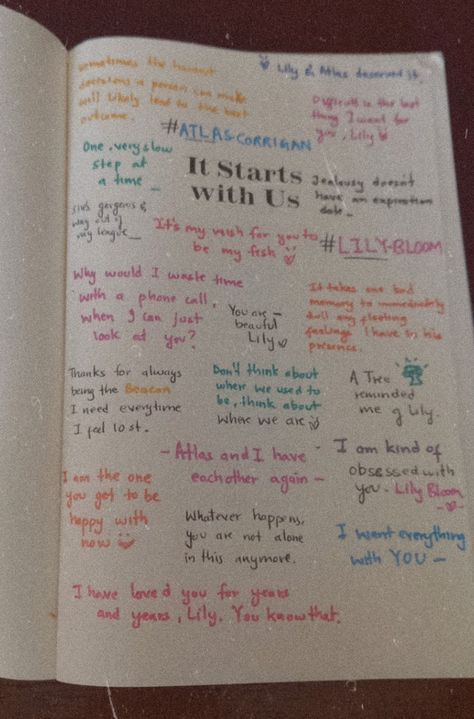 sometimes the hardest
decisions a person can make
will likely lead to the best
outcome.
Lily & Atlas deserved it.
Difficult is the last
thing I want for
you, Lily
#ATLAS CORRIGAN
One, very slow
step at
a time –
It Starts
with Us
Jealousy doesn't
have an expiration
date –
She's gorgeous &
way out of
my league –
It's my wish for you to
be my fish
#LILY-BLOOM
Why would I waste time
with a phone call,
when I can just
look at you?
You are –
beauful
Lily
It takes one bad
memory to immediately
dull any fleeting
feelings I have in his
presence.
Thanks for always
being the Beacon
I need everytime
I feel lost.
Don't think about
where we used to
be, think about
where we are
A Tree
reminded
me of Lily.
– Atlas and I have
eachother again –
I am kind of
obsessed with
you. Lily Bloom
I am the one
you get to be
happy with
now
Whatever happens,
you are not alone
in this anymore.
I want everything
with YOU –
I have loved you for years
and years, Lily. You know that.